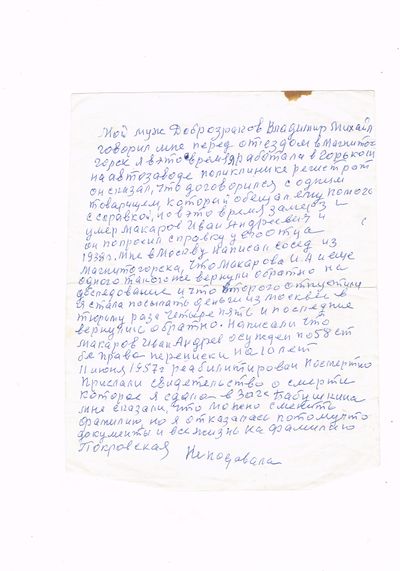 Мой муж Доброзраков Владимир Михайл
говорил мне перед отъездом в Магнитог
горск я в это время работала в Горьком
на автозаводе поликлинике регистрат
он сказал, что договорился с одним
товарищем, который обещал ему помочь
с справкой, но в это время замерз и
умер Макаров Иван Андреевич и
он попросил справку у его отца
1938 г. Мне в Москву написал сосед из
Магнитогорска, что Макарова И.А и еще
одного такого же вернули обратно на
доследование и что второго отпустили
Я стала посылать деньги из Москвы в
тюрьму раза четыре пять и последние
вернулись обратно. Написали что
Макаров Иван Андрев осужден по 58 ст
без права переписки на 10 лет
11 июня 1957 г реабилитирован посмертно
Прислали свидетельство о смерти
которое я сдала в Загс Бабушкина
мне сказали, что можно сменить
фамилию но я отказалась потому что
документы и вся жизнь на фамилию
Покровская
Не подавала